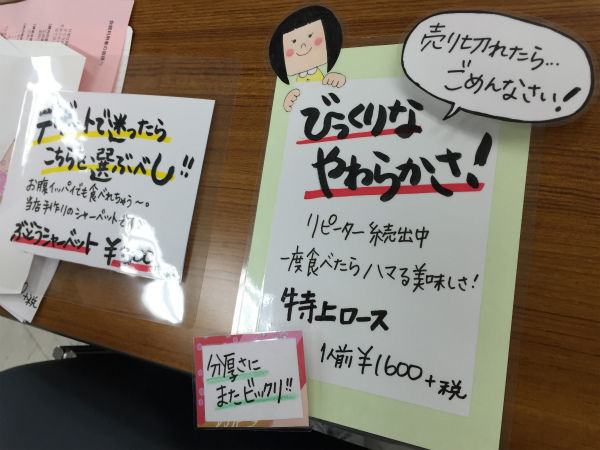 デザートで迷ったら
こちらを選ぶべし!!
お腹イッパイでも食べれちゃう〜。
当店手作りのシャーベット
ぶどうシャーベット ¥300
税
売り切れたら…
ごめんなさい!
びっくりな
やわらかさ!
リピーター続出中
一度食べたらハマる美味しさ!
特上ロース
1人前¥1600+税
分厚さに
またビックリ!!